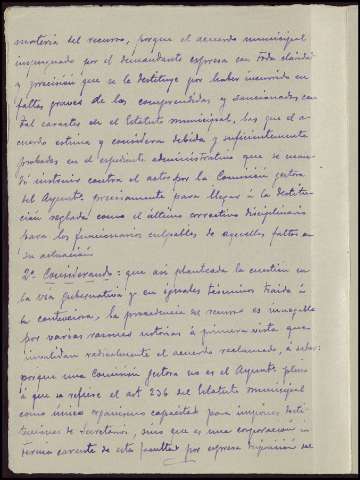 materia del recurso, porque el acuerdo municipal
impugnado por el demandante expresa con toda claridad
y precisión que se le destituye por haber incurrido en
faltas graves de las comprendidas y sancionadas con
tal caracter en el Estatuto municipal, las que el a-
cuerdo estima y considera debida y suficientemente
probadas en el expediente administrativo que se man-
dó instruir contra el actor por la Comisión gestora
del Ayuntº precisamente para llegar á la destitu-
ción reglada como el último correctivo disciplinario
para los funcionarios culpables de aquellas faltas en
su actuación
2º Considerando: que así planteada la cuestión en
la vía gubernativa y en iguales términos traida á
la contenciosa, la procedencia del recurso es innegable
por varias razones notorias á primera vista que
invalidan radicalmente el acuerdo reclamado, á saber:
porque una Comisión gestora no es el Ayuntº pleno
á que se refiere el art 236 del Estatuto municipal
como único organismo capacitado para imponer desti-
tuciones de Secretarios, sino que es una corporación in-
terina carente de esta facultad por expresa disposición del